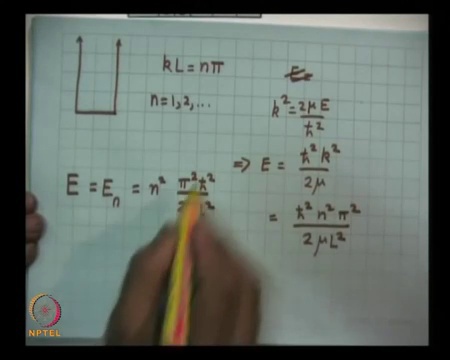 kL = nπ
n = 1, 2, ...
k² = 2μE / ħ²
⇒ E = ħ²k² / 2μ
= ħ² n² π² / 2μL²
E = E_n = n² π²ħ²
NPTEL